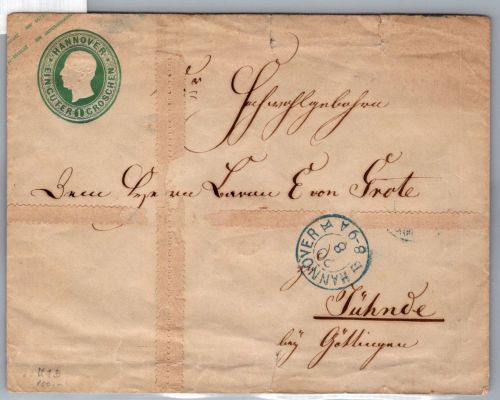 HANNOVER
EIN GUTER GROSCHEN
1
Sr
Hochwohlgeboren
Dem Herrn Baron E von Grote
HANNOVER
8
A 6-8
Jühnde
bey Göttingen
100.-